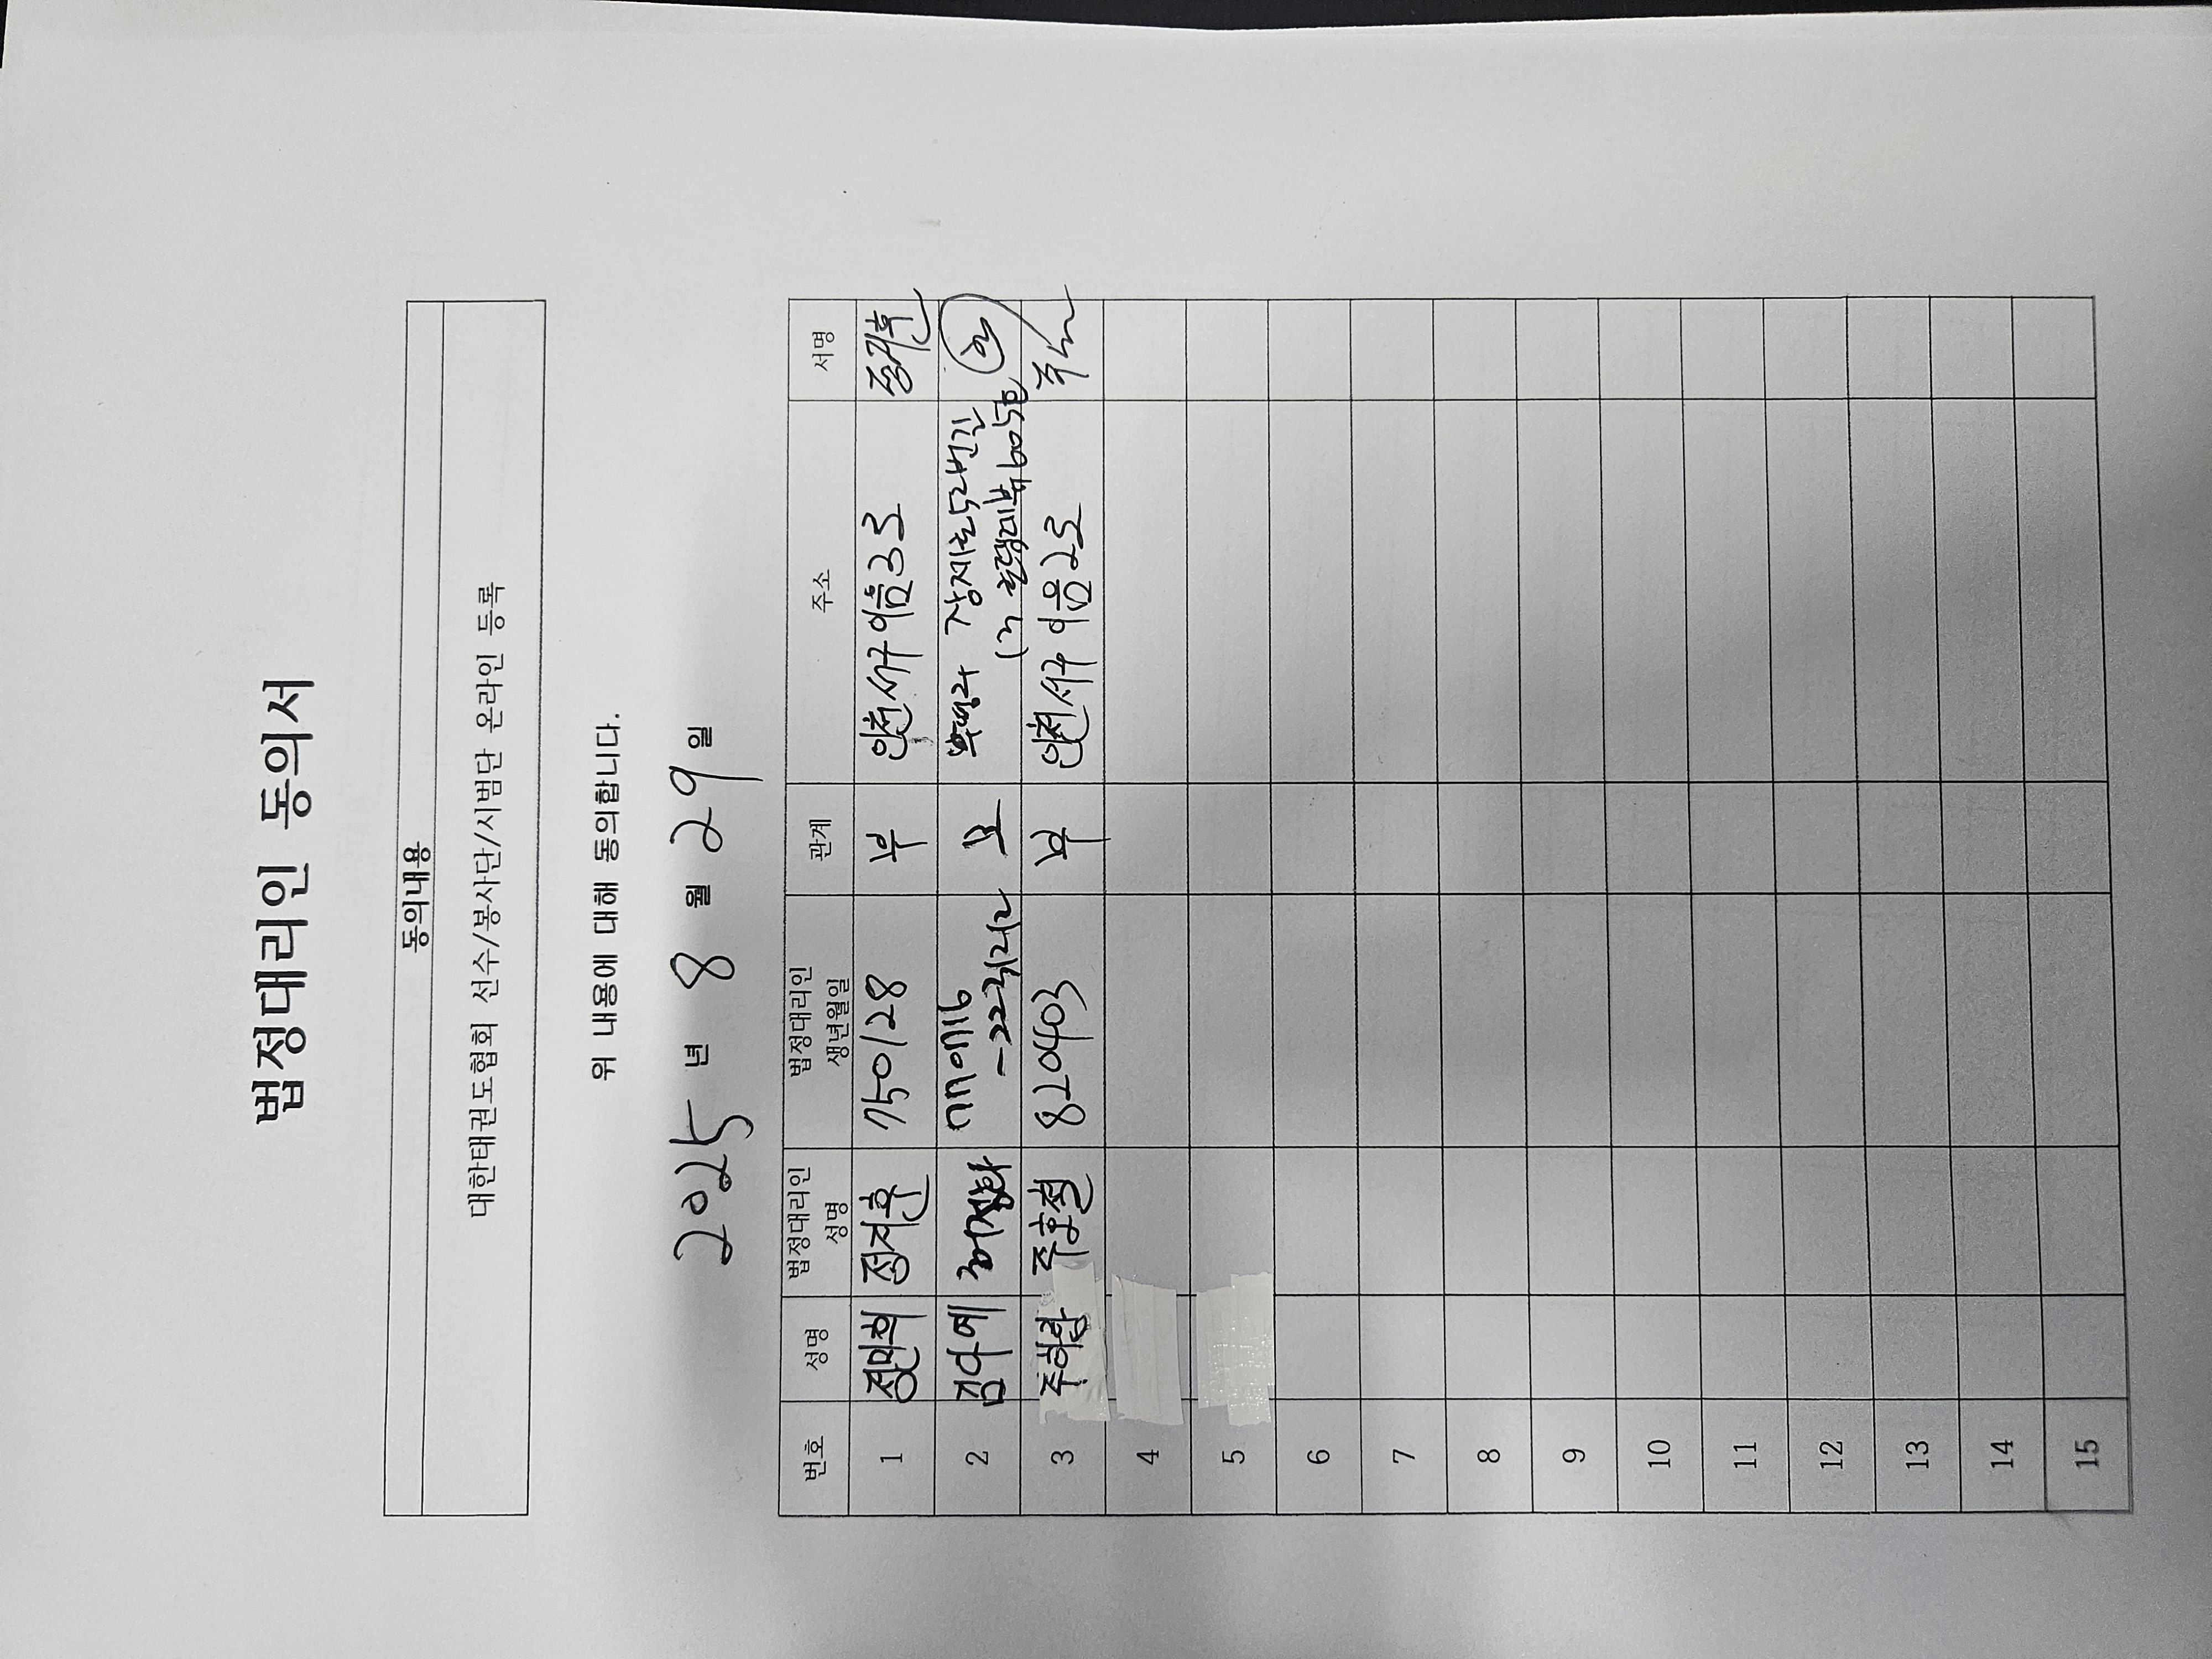 법정대리인 동의서
동의내용
대한태권도협회 선수/봉사단/시범단 온라인 등록
위 내용에 대해 동의합니다.
2025 년 8 월 29 일
번호 성명 법정대리인 성명 법정대리인 생년월일 관계 주소 서명
1 정민희 정지훈 750128 부 인천 서구 이음3로 정지훈
2 김수예 모
3 주하람 주호철 820403 부 인천 서구 이음2로
4
5
6
7
8
9
10
11
12
13
14
15